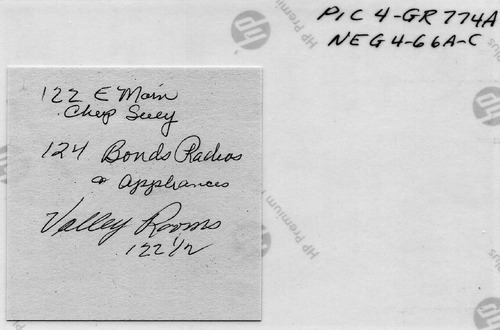 PIC 4-GR774A
NEG 4-66A-C
122 E Main
Chop Suey
124 Bonds Radios
& Appliances
Valley Rooms
122 1/2
hp
HP Premium
HP Premium
plus